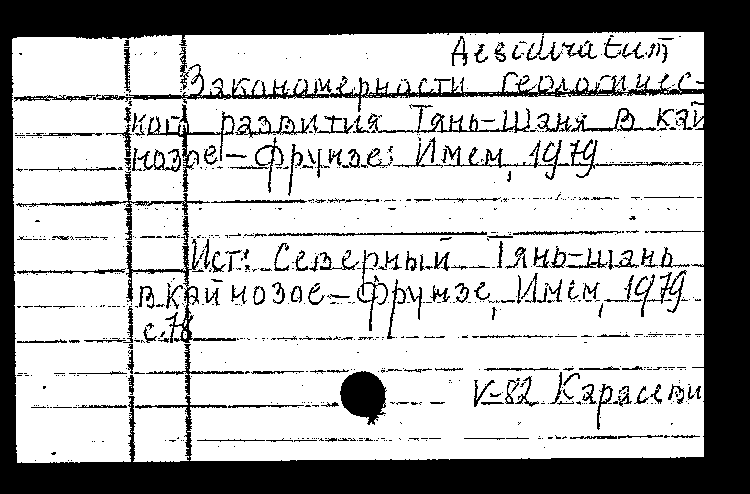 Desideratum
Закономерности геологичес-
кого развития Тянь-Шаня в кай
нозое – Фрунзе: Илем, 1979
Ист: Северный Тянь-шань
в кайнозое – Фрунзе, Илем, 1979
с.78
V-82 Карасеви